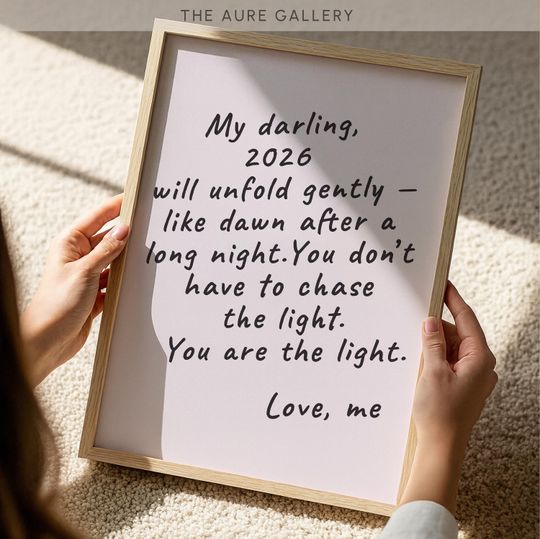 THE AURE GALLERY
My darling,
2026
will unfold gently –
like dawn after a
long night.You don't
have to chase
the light.
You are the light.
Love, me